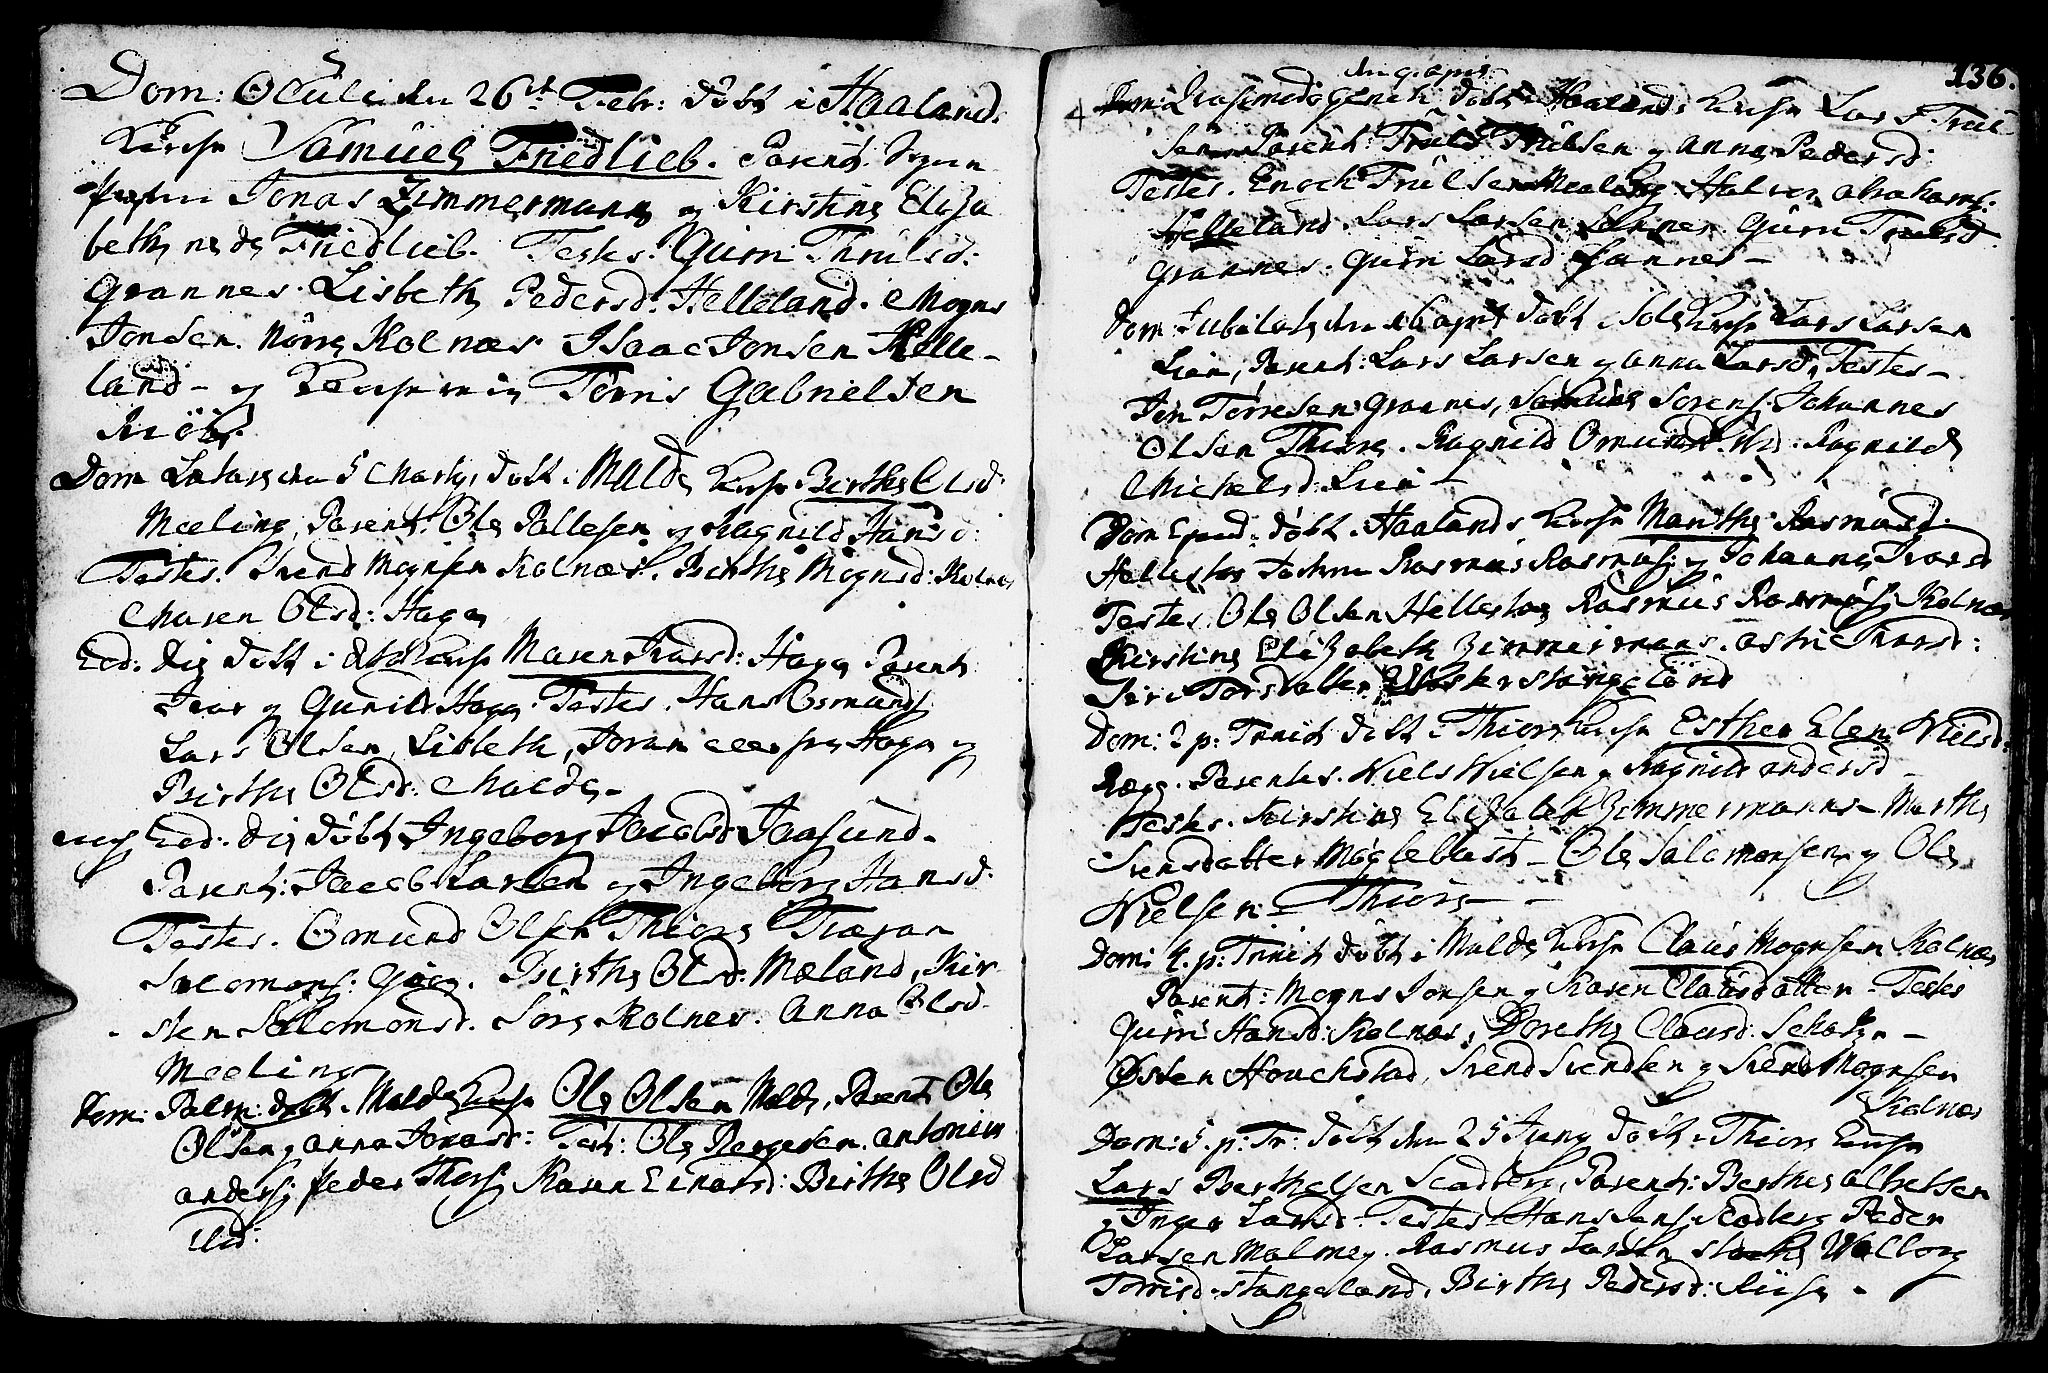 Dom: Oculi den 26de Febr: døbt i Haaland
Kirche Samuel Friedlieb. Parent. Sogne
præsten Jonas Zimmermann og Kirstine Eliza
beth, næde Friedlieb. Testes. Guri Thrulsd:
Grannes. Lisbeth Pedersd: Helleland. Mogns
Jonsen. Nørre Kolnæs. Isaac Jonsen Helle-
land - og Tønis Gabrielsen
Dom Lætare den 5 Marty, døbt i Malde Kirche Birthe Olsd:
Mæling, Parent: Ole Pallesen og Ragnild Hansd:
Testes. Svend Mognsen Kolnæs. Birthe Mognsd: Kolnæs
Maren Olsd: Haga
Eod: die døbt i Kirche Maren Ivarsd: Haga Parent
Ivar og Gunild Haga. Testes. Hans Osmunds.
Lars Olsen, Lisbeth, Joran alle fra Haga og
Birthe Olsd: Malde -
Eod. die døbt Ingeborg Jacobsd Jaasund.
Parent: Jacob Larsen og Ingeborg Hansd:
Testes. Omund Olsen Thiore Tiøran
Salomons: Birthe Olsd: Mæland, Kir-
sten Salomonsd. Søre Kolnes. Anna Olsd.
Meeling
Dom: Palm: døbt i Malde Kirche Ole Olsen Malde, Parent Ole
Olsen og Anna Jonasd: Test: Ole Antonius
Anders: Peder Thors: Karen Einarsd: Birthe Olsd
ibid:
136.
den 9. april
Dom: Qvasimodogenit: døbt i Haalands Kirche Lars Trul
sen Parent: Truls Trulsen og Anna Pedersd:
Testes. Enoch Trulsen Mæling Halvor Abrahams:
Helleland. Lars Larsen Guri Trulsd
Grannes. Guri Larsd
Dom: Jubilate den 16 april døbt i Sole Kirche Lars Larsen
Parent: Lars Larsen og Anna Larsd, Testes -
Jon Torresen Grannes, Samuel Sørens: Johannes
Olsen Thiore. Ragnild Omundsd. ibid: Ragnild
Michelsd.
Dom Exaud: døbt i Haalands Kirche Marthe Rasmusd:
Hellestøe Rasmus Rasmus: og Johanne Ivarsd
Testes. Ole Olsen Hellestøe, Rasmus Rasmus: Kolnæs
Kirstine Elizabeth Zimmermans. Astri Ivarsd:
Siri Torsdatter Stangeland
Dom: 2 p: Trinit døbt i Thiore Kirche Esther Elen Nielsd:
Ræge. Parentes. Niels Nielsen og Ragnild Andersd -
Testes. Kirstine Elizabeth Zimmermanns - Marthe
Svensdatter Mygleblust - Ole Salomonsen og Ole
Nielsen - Thiore -
Dom: 4. p: Trinit døbt i Malde Kirche Claus Mognsen Kolnæs
Parent: Mogns Jonsen og Karen Clausdatter - Testes
Guri Hansd: Kolnæs, Dorethe Clausd:
Østen Houchstad, Svend Svendsen og Svend Mognsen
Kolnæs
Dom: 5. p: Tr: døbt den 25 Juny døbt i Thiore Kirche
Lars Berthelsen Scadberg, Parent: Berthel
og Inger Larsd - Testes Hans Jens: Scadberg Peder
Larsen Malmey. Rasmus Larsen Walborg
Tonisd: Stangeland, Birthe Pedersd: